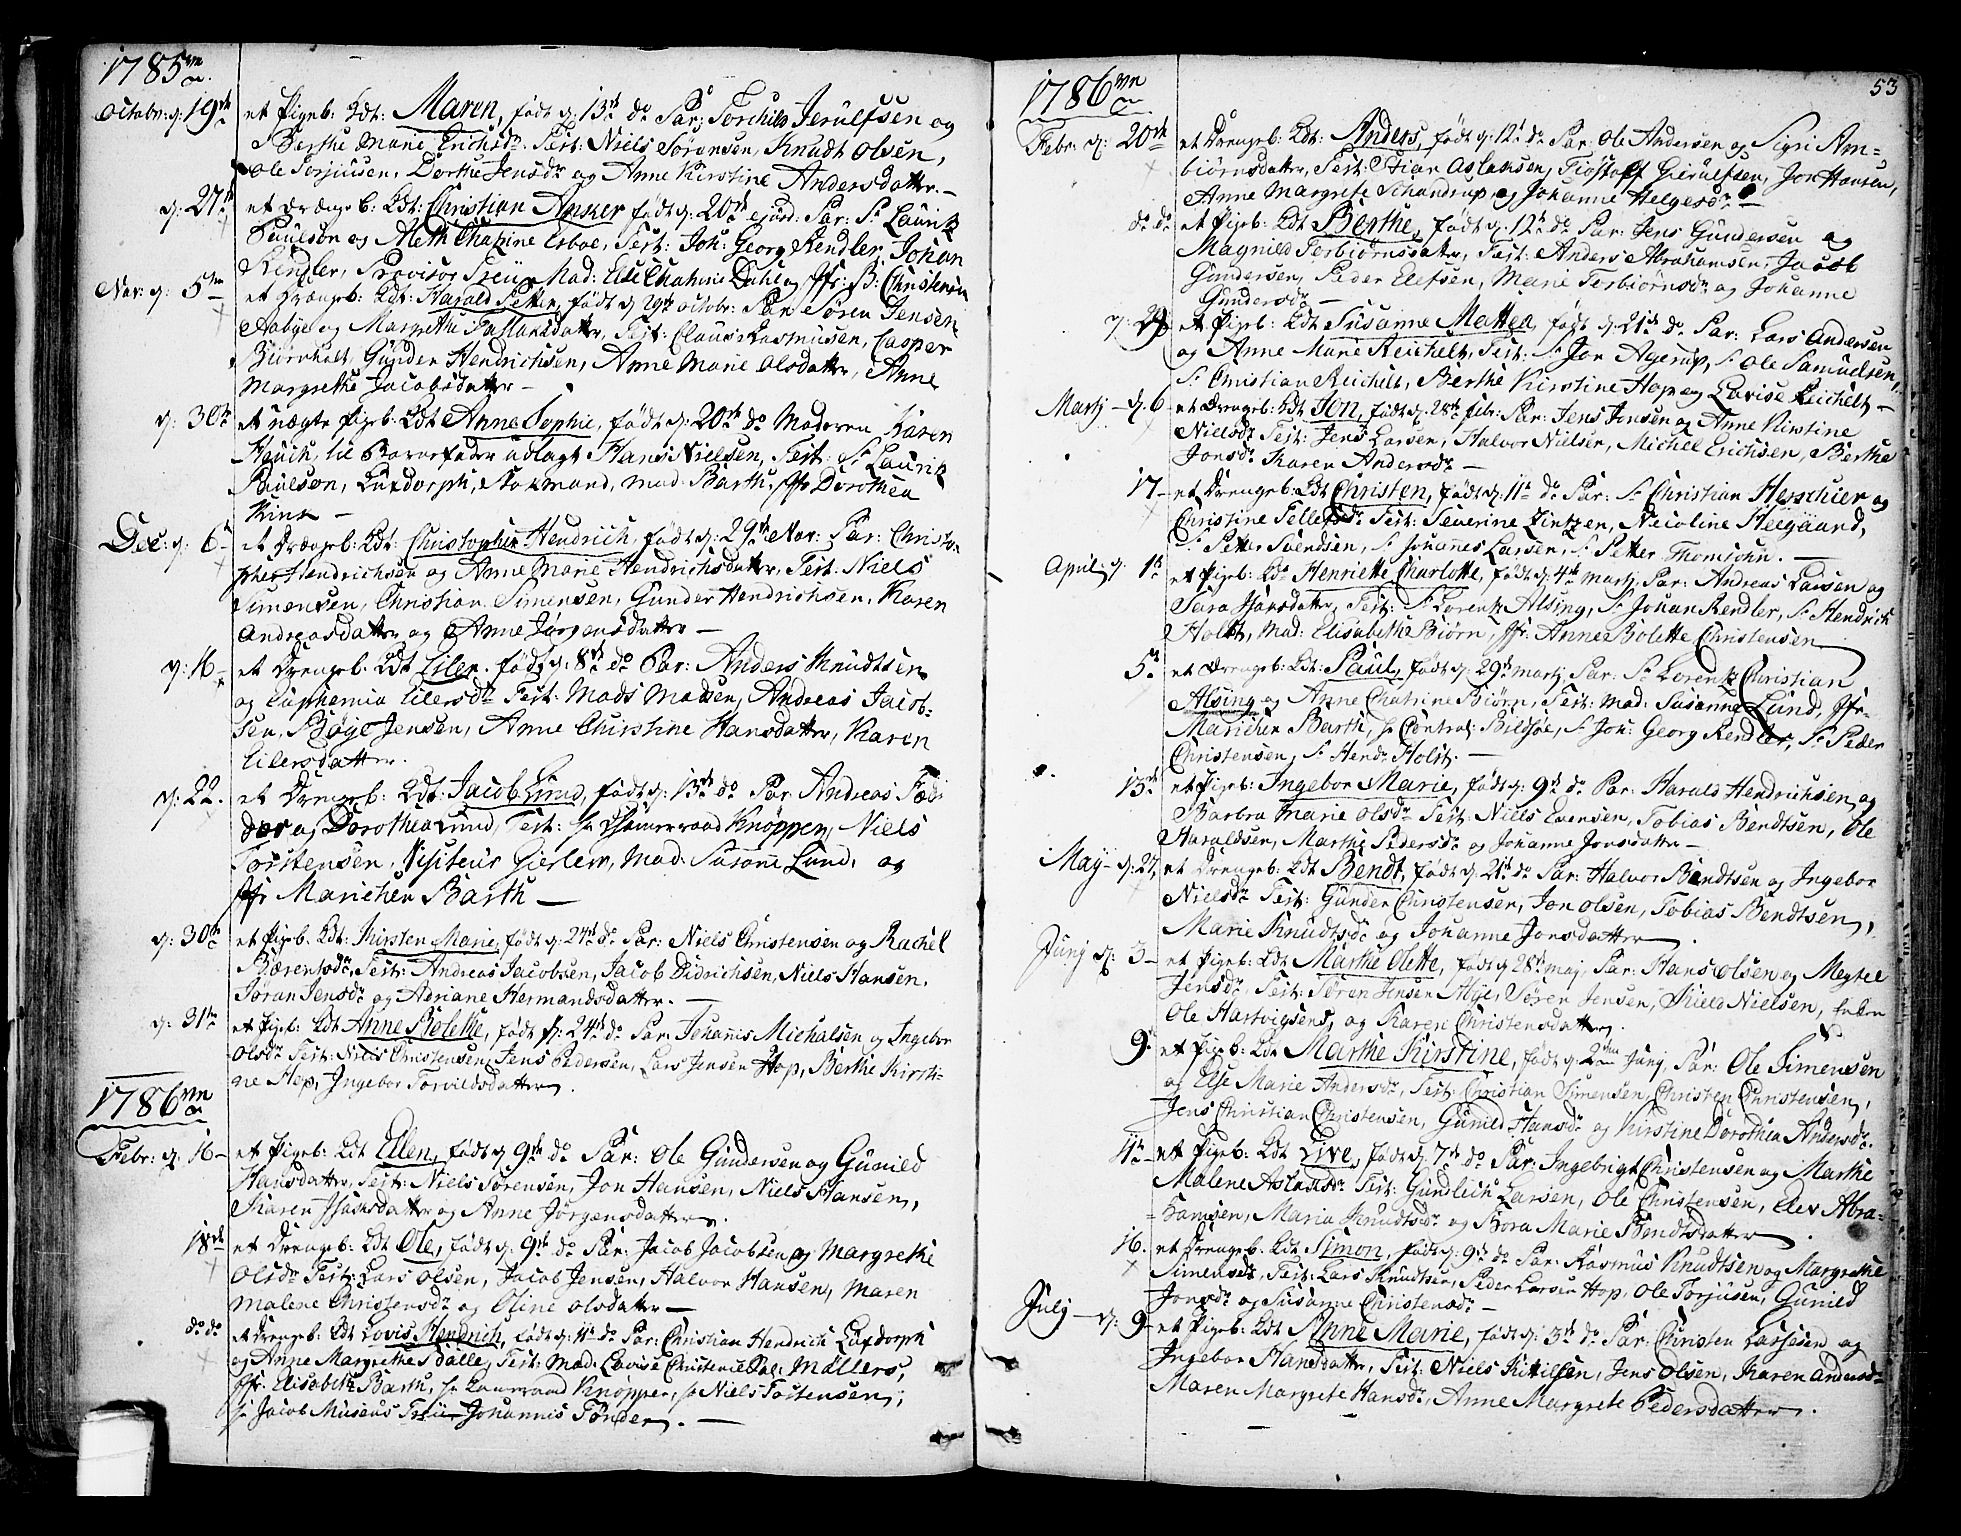 1785
Octobr: d: 19de et Pigeb: kdt: Maren, født d: 13de do Par: Torchild Jerulfsen og
Berthe Marie Erichsdr. Test: Niels Sørensen, Knudt Olsen,
Ole Torjusen, Dorthe Jensdr og Anne Kirstine Andersdatter. —
d: 27de et Drængeb: kdt: Christian Anker født d: 20de ejusd: Par: Sr. Lauritz
Paulson og Aleth Chatrine Esboe, Test: Joh: Georg Rendler, Johan
Rendler, Provisor Treu, Mad: Else Chatrine Dahl og Jfr: B: Christensen
Nov: d: 5te et Drængeb: kdt: Harald Peter, født d 29de octobr: Par Søren Jensen
Aabye og Margrethe Tallaksdatter, Test: Claus Rasmussen, Casper
Burrholt, Gunder Hendrichsen, Anne Marie Olsdatter, Anne
Margrethe Jacobsdatter —
d: 30te et uægte Pigeb: kdt Anne Sophie, født d: 20de do Moderen Karen
Houch, til Barnefader udlagt Hans Nielsen, Test: Sr. Lauritz
Paulson, Luxdorph, Stokmand, Mad: Barth, Jfr Dorothea
Kink —
Dec: d: 6te et Drængeb: kdt: Christopher Hendrich, født d: 29de Nov: Par: Christo-
pher Hendrichsen og Anne Marie Hendrichsdatter, Test: Niels
Simensen, Christian Simensen, Gunder Hendrichsen, Karen
Andreasdatter og Anne Jørgensdatter —
d: 16 — et Drengeb: kdt Eiler, født d: 8de do Par: Anders Knudtsen
og Euphemia Eilersdr Test: Mads Madsen, Andreas Jacob-
sen, Bøye Jensen, Anne Chirstine Hansdatter, Karen
Eilersdatter.
d: 22. et Drengeb: kdt: Jacob Lund, født d: 13de do Par Andreas Fæd-
der og Dorothea Lund, Test: Hr Kamerraad Knøppen, Niels
Torstensen, Visiteur Gierløw, Mad: Susane Lund, og
Jfr Marichen Barth —
d: 30te et Pigeb: kdt: Kirsten Marie, født d: 24de do Par: Niels Christensen og Rachel
Bærentsdr, Test: Andreas Jacobsen, Jacob Didrichsen, Niels Hansen,
Jøran Jensdr og Adriane Hermandsdatter. —
d: 31te et Pigeb: kdt Anne Bolette, født d: 24de do Par: Johanis Michalsen og Ingebor
Olsdr Test: Niels Christensen, Jens Pedersen, Lars Jensen Hop, Berthe Kirsti-
ne Hop, Ingebor Torvildsdatter.
1786
Febr: d: 16 — et Pigeb: kdt Ellen, født d: 9de do Par: Ole Gundersen og Gunild
Hansdatter, Test: Niels Sørensen, Jon Hansen, Niels Hansen,
Karen Isaksdatter og Anne Jørgensdatter.
18de et Drengeb: kdt Ole, født d: 9de do Par: Jacob Jacobsen og Margrethe
Olsdr Test: Lars Olsen, Jacob Jensen, Halvor Hansen, Maren
Malene Christensdr og Oline Olsdatter —
do do et Drengeb: kdt Lovis Hendrich, født d: 11te do Par: Christian Hendrich Luxdorph
og Anne Margrethe Sdalle, Test: Mad: Lovise Christine Møllers,
Jfr. Elisabeth Barth, Hr Kamerraad Knøppen, Hr Niels Tostensen,
Hr Jacob Museus Treu Johannis Tønder. —
53
1786
Febr: d: 20de et Drengeb: kdt: Anders, født d: 12te do Par: Ole Andersen og Sigri Am-
biørnsdatter, Test: Stian Aslaksen, Tiøstolf Gierulfsen, Jon Hansen,
Anne Margrete Schandrup, og Johanne Helgesdr —
do do et Pigeb: kdt Berthe, født d: 12te do Par: Jens Gundersen og
Magnild Torbiørnsdatter, Test: Anders Abrahamsen, Jacob
Gundersen, Peder Elefsen, Marie Torbiørnsdr og Johanne
Gundersdr —
d: 29 et Pigeb: kdt Susanne Mattea, født d: 21de do Par: Lars Andersen
og Anne Marie Reichelt, Test: Sr Jon Agerup, Sr. Ole Samuelsen,
Sr Christian Reichelt, Berthe Kirstine Hop og Lavise Reichelt —
Martj — d. 6 et Drengeb: kdt Jon, født d: 28de febr: Par: Jens Jonsen og Anne Kirstine
Nielsdr Test: Jens Larsen, Halvor Nielsen, Michel Erichsen, Berthe
Jonsdr Karen Andersdr —
17 — et Drengeb: kdt Christen, født d: 11te do Par: Sr Christian Herschier og
Christine Tellefsdr Test: Severine Zintzen, Nicoline Heegaard,
Sr. Petter Svendsen, Sr Johannes Larsen, Sr. Petter Thomsohn. —
April: d: 1te et Pigeb: kdt Henriette Charlotte, født d: 4de Martj Par: Andreas Larsen og
Sara Isaksdatter, Test: Sr. Lorentz Alsing, Sr Johan Rendler, Sr. Hendrich
Holst, Mad: Elisabeth Biørn, Jfr: Anne Bolette Christensen
5te et Drengeb: kdt: Paul, født d: 29de martj Par: Sr Lorentz Christian
Alsing og Anne Chatrine Biørn, Test: Mad: Susanne Lund, Jfr
Marichen Barth, Hr Control: Bildsøe, Sr Joh: Georg Rendler, Sr Peder
Christensen, Sr Hendr Holst. —
13de et Pigeb: Ingebor Marie, født d: 9de do Par: Harald Hendrichsen og
Barbra Marie Olsdr Test: Niels Evensen, Tobias Bendtsen, Ole
Haraldsen, Marthe Pedersdr og Johanne Jonsdatter —
May — d: 27, et Drengeb: kdt Bendt, født d: 21de do Par: Halvor Bendtsen og Ingebor
Nielsdr Test: Gunder Christensen, Jon Olsen, Tobias Bendtsen,
Marie Knudtsdr og Johanne Jonsdatter.
Junj d: 3 — et Pigeb: kdt Marthe Olette, født d 28de maj, Par: Hans Olsen og Megtel
Jensdr Test: Søren Jensen Alye, Søren Jensen, Niels Nielsen,
Ole Hartvigsens, og Karen Christensdatter.
9de et Pigeb: kdt Marthe Kirstine, født d: 2den Junj Par: Ole Simensen
og Else Marie Andersdr, Test: Christian Simensen, Christen Christensen,
Jens Christian Christensen, Gunild Hansdr og Kirstine Dorothea Andersdr.
11te — et Pigeb: kdt Live, født d: 7de do Par: Ingebrigt Christensen og Marthe
Malene Aslaksdr Test: Gundleich Larsen, Ole Christensen, Elev Abra-
hamsen, Maria Knudtsdr og Bora Marie Bendtsdatter.
16. et Drengeb: kdt Simon, født d: 9de do Par: Rasmus Knudtsen og Margrethe
Simensdr, Test: Lars Knudtsen, Peder Larsen Hop, Ole Torjusen, Gunild
Jonsdr og Susanne Christensdr —
Julj — d: 9 — et Pigeb: kdt Anne Marie, født d: 3de do Par: Christen Lassesen og
Ingebor Hansdatter, Test: Niels Kittilsen, Jens Olsen, Karen Andersdr
Maren Margrete Hansdr, Anne Margrete Pedersdatter.